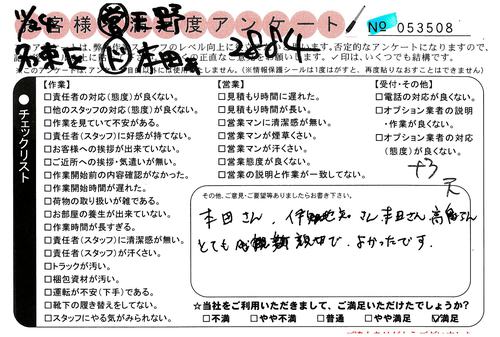 お客様満足度アンケート
No 053508
名東区
2884
✓印は、いくつでも結構です。
(※情報保護シールは1度がすと、再度貼りなおすことはできません)
チェックリスト
【作業】
□責任者の対応(態度)が良くない。
□他のスタッフの対応(態度)が良くない。
□作業を見ていて不安がある。
□責任者(スタッフ)に好感が持てない。
□お客様への挨拶が出来ていない。
□ご近所への挨拶・気遣いが無い。
□作業開始前の内容確認がなかった。
□作業開始時間が遅れた。
□荷物の取り扱いが雑である。
□お部屋の養生が出来ていない。
□作業時間が長すぎる。
□責任者(スタッフ)に清潔感が無い。
□責任者(スタッフ)が汗くさい。
□トラックが汚い。
□梱包資材が汚い。
□運転が不安(下手)である。
□靴下の履き替えをしてない。
□スタッフにやる気がみられない。
【営業】
□見積もり時間に遅れた。
□見積もり時間が長い。
□営業マンに清潔感が無い。
□営業マンが煙草くさい。
□営業マンが汗くさい。
□営業態度が良くない。
□営業の説明と作業が一致してない。
【受付・その他】
□電話の対応が良くない。
□オプション業者の説明
・作業が良くない。
□オプション業者の対応
(態度)が良くない。
+3
その他、ご意見・ご要望等ありましたらお書き下さい。
本田さん、
とても 親切で、よかったです。
☆当社をご利用いただきまして、ご満足いただけたでしょうか?
□不満 □やや不満 □普通 □やや満足 ☑満足